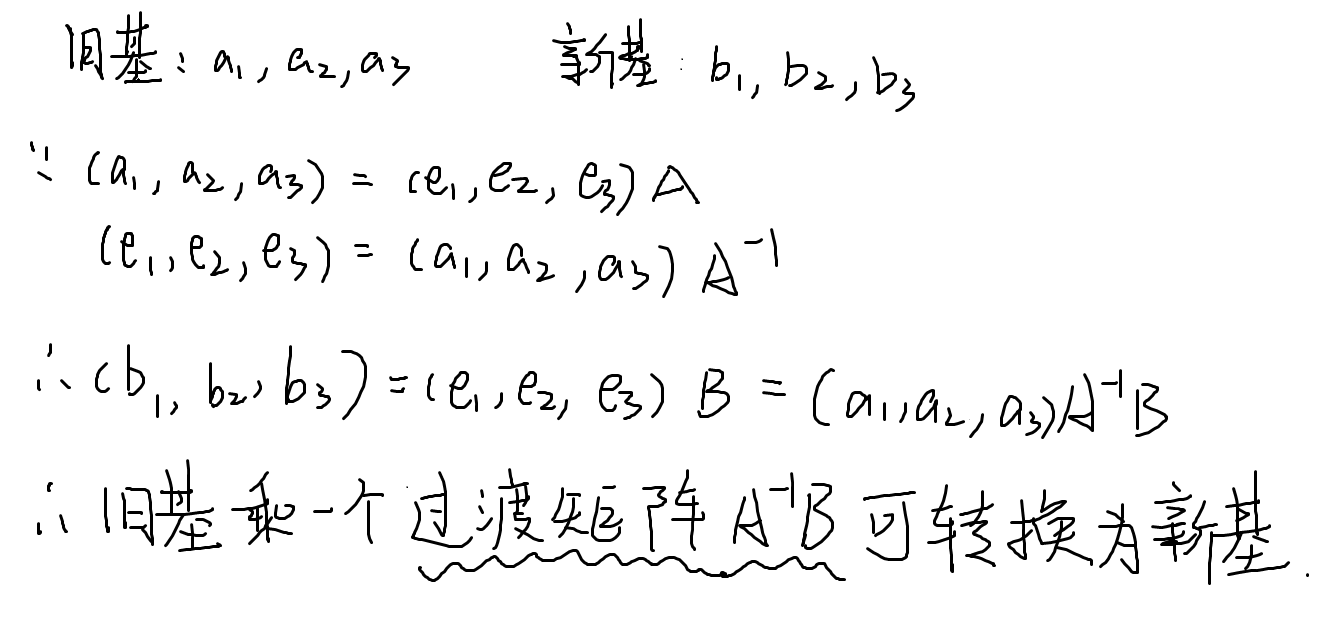 旧基：a₁, a₂, a₃ 新基：b₁, b₂, b₃
∵ (a₁, a₂, a₃) = (e₁, e₂, e₃) A
(e₁, e₂, e₃) = (a₁, a₂, a₃) A⁻¹
∴ (b₁, b₂, b₃) = (e₁, e₂, e₃) B = (a₁, a₂, a₃) A⁻¹B
∴ 旧基乘一个过渡矩阵 A⁻¹B 可转换为新基.